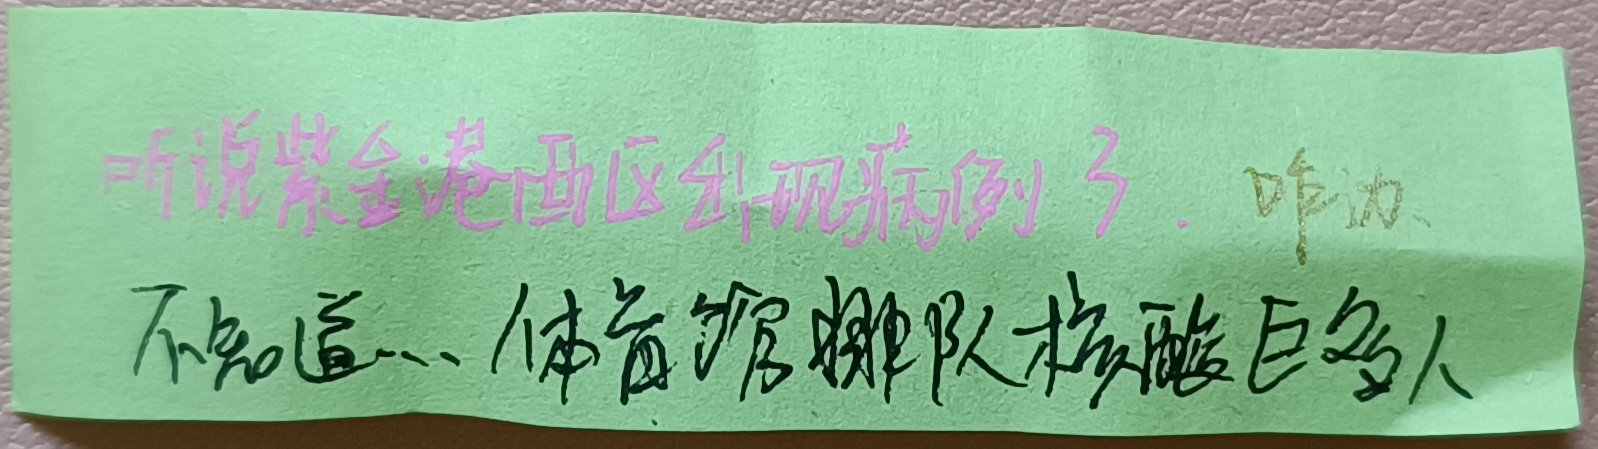 听说紫金港西区出现病例了. 咋办、
不知道... 体育馆排队核酸巨多人